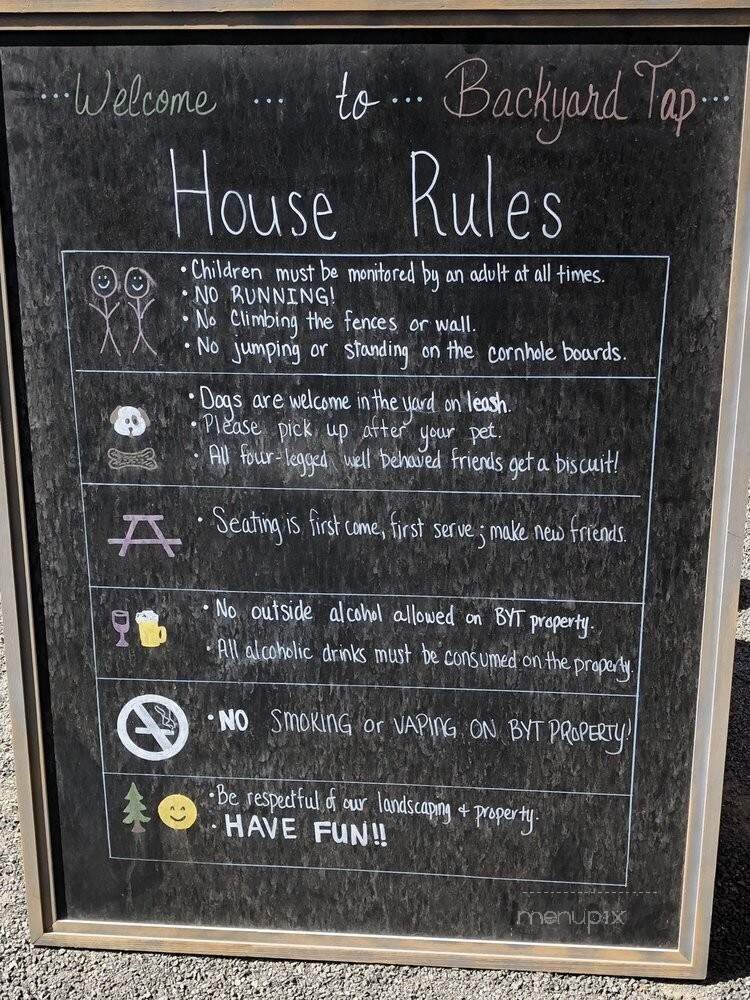 ...Welcome ... to ... Backyard Tap...
House Rules
• Children must be monitored by an adult at all times.
• NO RUNNING!
• No Climbing the fences or wall.
• No jumping or standing on the cornhole boards.
• Dogs are welcome in the yard on leash.
• Please pick up after your pet.
• All four-legged well behaved friends get a biscuit!
• Seating is first come, first serve; make new friends.
• No outside alcohol allowed on BYT property.
• All alcoholic drinks must be consumed on the property.
• NO SMOKING or VAPING ON BYT PROPERTY!
• Be respectful of our landscaping + property.
• HAVE FUN!!
menupix